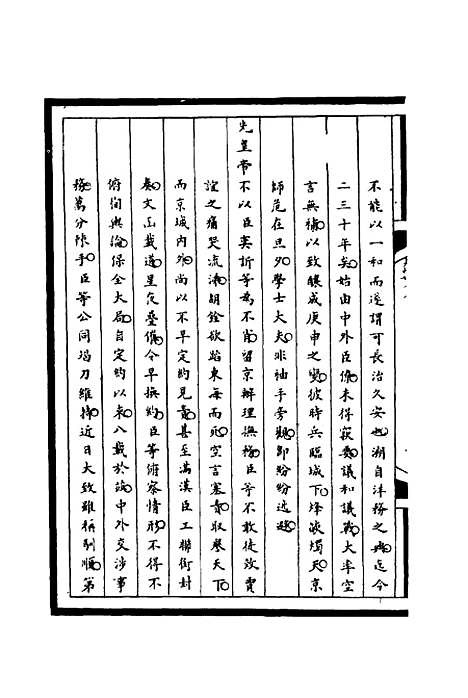 不能以一和而遂謂可長治久安也溯自洋務之興迄今
二三十年矣始由中外臣僚未得窾要議和議戰大率空
言無補以致釀成庚申之變彼時兵臨城下烽燄燭天京
師危在旦夕學士大夫非袖手旁觀卽紛紛逃避
先皇帝不以臣奕訢等為不肖留京辦理撫務臣等不敢徒效賈
誼之痛哭流涕胡銓欲蹈東海而死空言塞責取譽天下
而京城內外尚以不早定約見責甚至滿漢臣工聯銜封
奏文函載道星夜疊催令早換約臣等俯察情形不得不
俯徇輿論保全大局自定約以來八載於茲中外交涉事
務萬分棘手臣等公同竭力維持近日大致雖稱馴順第